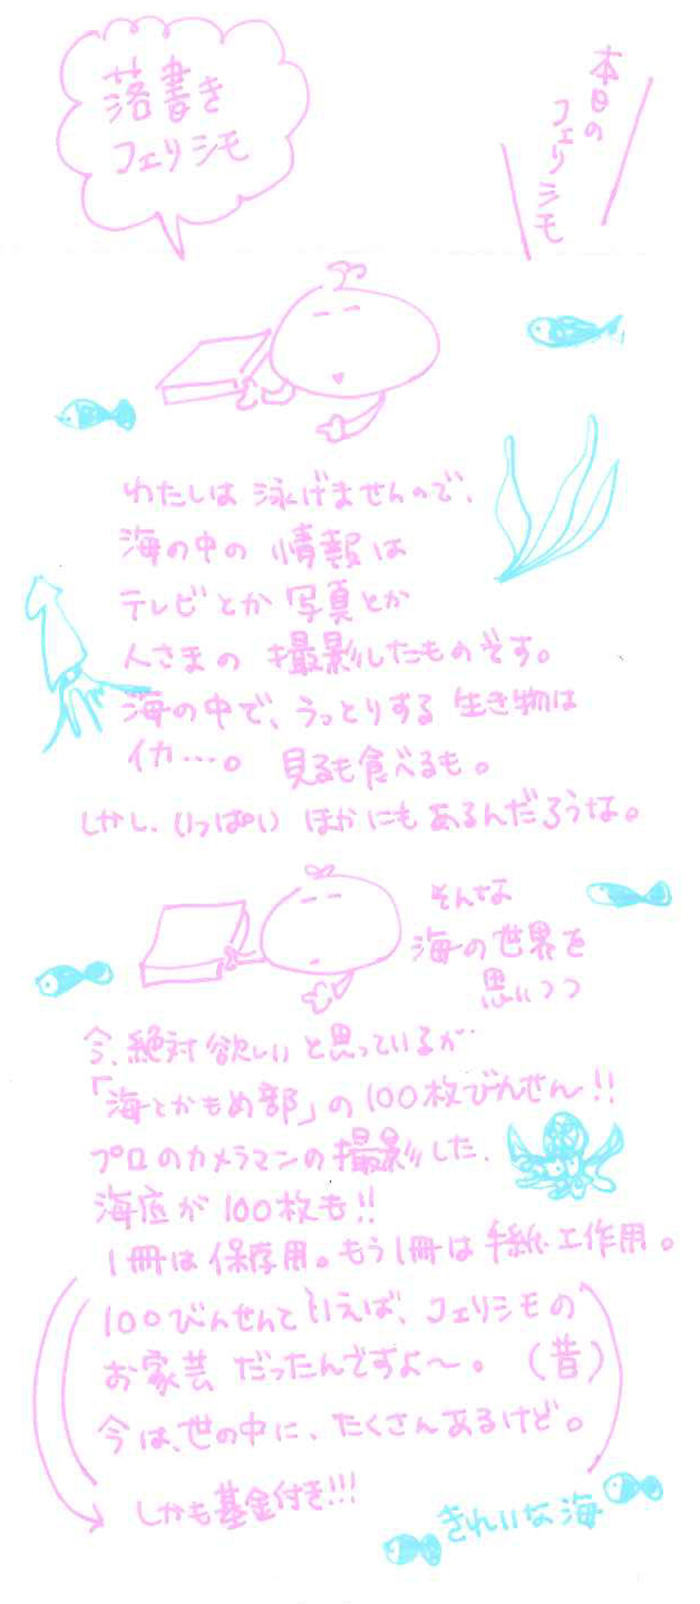 落書き
フェリシモ
本日の
フェリシモ
わたしは 泳げませんので、
海の中の 情報は
テレビとか 写真とか
人さまの 撮影したものです。
海の中で、うっとりする 生き物は
イカ…。 見るも食べるも。
しかし、いっぱい ほかにも あるんだろうな。
そんな
海の世界を
思いつつ
今、絶対 欲しい と思っているが
「海とかもめ部」の 100枚びんせん!!
プロのカメラマンの 撮影した、
海底が 100枚も!!
1冊は 保存用。もう1冊は 手紙 工作用。
100びんせんと いえば、フェリシモの
お家芸 だったんですよ〜。 (昔)
今は、世の中に、たくさんあるけど。
しかも 基金付き!!!
きれいな海